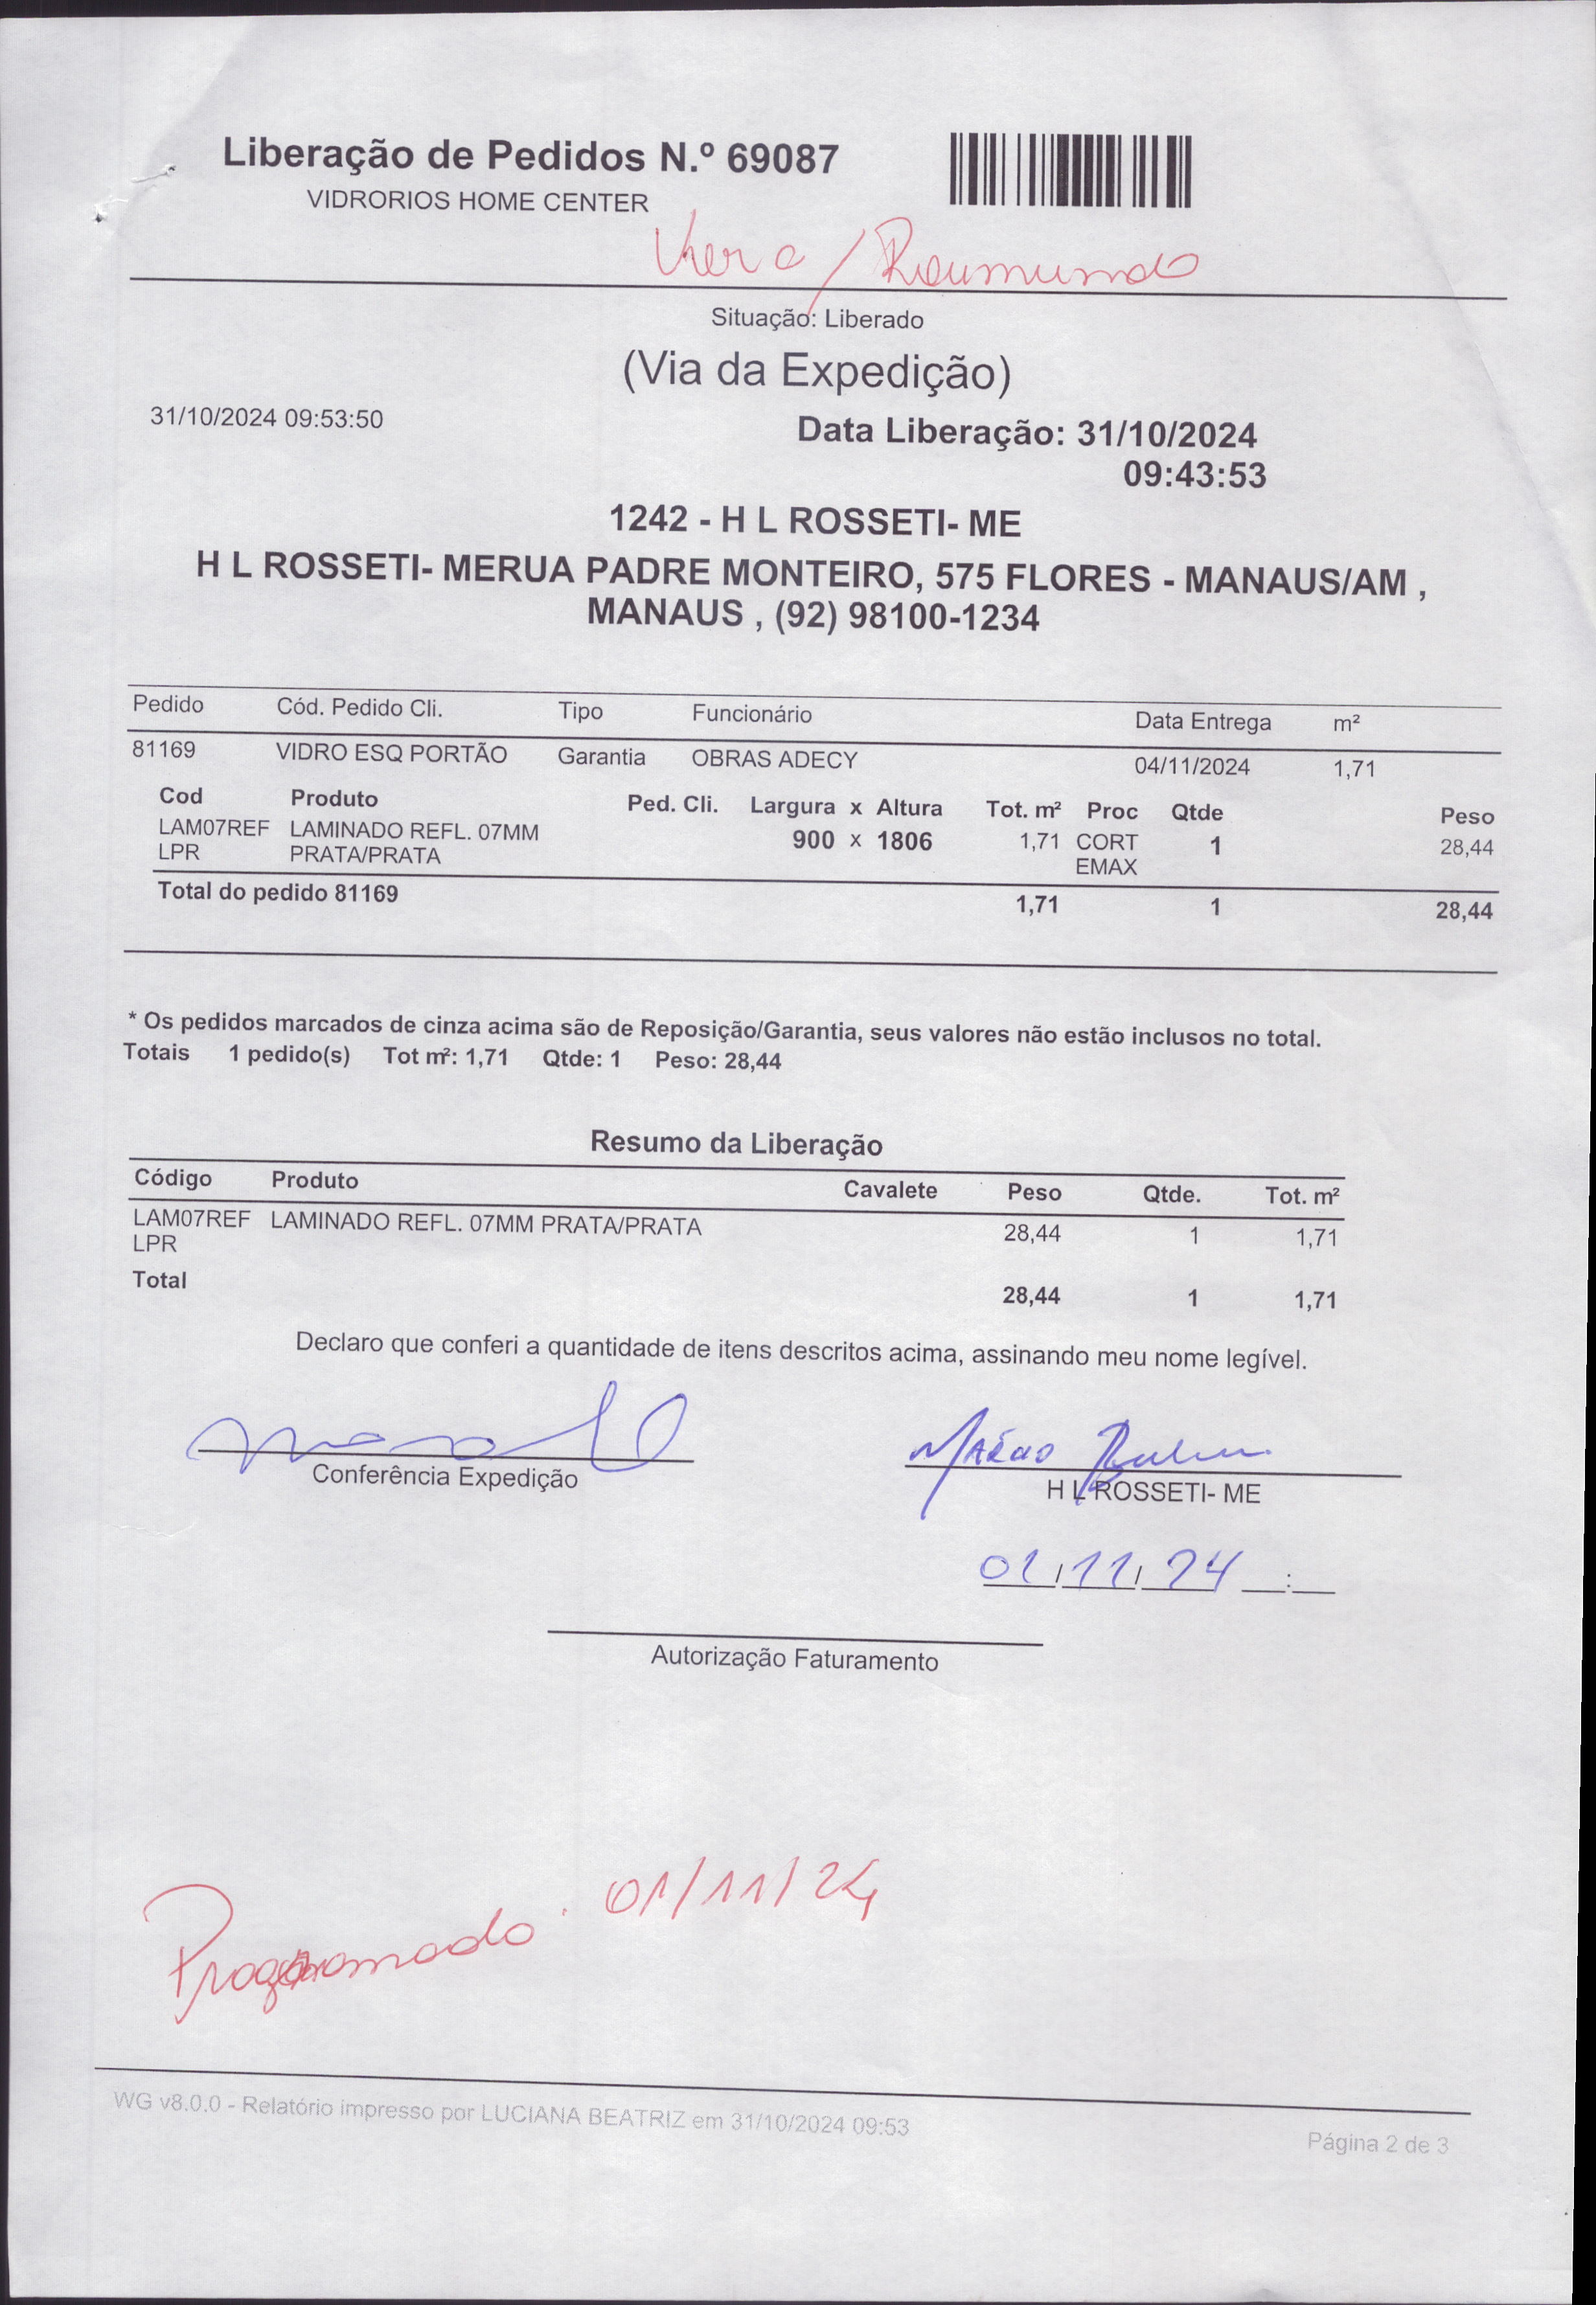 Liberação de Pedidos N.º 69087
VIDRORIOS HOME CENTER
/ Raimundo
Situação: Liberado
(Via da Expedição)
31/10/2024 09:53:50
Data Liberação: 31/10/2024
09:43:53
1242 - H L ROSSETI- ME
H L ROSSETI- MERUA PADRE MONTEIRO, 575 FLORES - MANAUS/AM ,
MANAUS , (92) 98100-1234
Pedido Cód. Pedido Cli. Tipo Funcionário Data Entrega m²
81169 VIDRO ESQ PORTÃO Garantia OBRAS ADECY 04/11/2024 1,71
Cod Produto Ped. Cli. Largura x Altura Tot. m² Proc Qtde Peso
LAM07REF LAMINADO REFL. 07MM 900 x 1806 1,71 CORT 1 28,44
LPR PRATA/PRATA EMAX
Total do pedido 81169 1,71 1 28,44
* Os pedidos marcados de cinza acima são de Reposição/Garantia, seus valores não estão inclusos no total.
Totais 1 pedido(s) Tot m²: 1,71 Qtde: 1 Peso: 28,44
Resumo da Liberação
Código Produto Cavalete Peso Qtde. Tot. m²
LAM07REF LAMINADO REFL. 07MM PRATA/PRATA 28,44 1 1,71
LPR
Total 28,44 1 1,71
Declaro que conferi a quantidade de itens descritos acima, assinando meu nome legível.
Conferência Expedição
H L ROSSETI- ME
01/11/24 __:__
Autorização Faturamento
Programado 01/11/24
WG v8.0.0 - Relatório impresso por LUCIANA BEATRIZ em 31/10/2024 09:53
Página 2 de 3